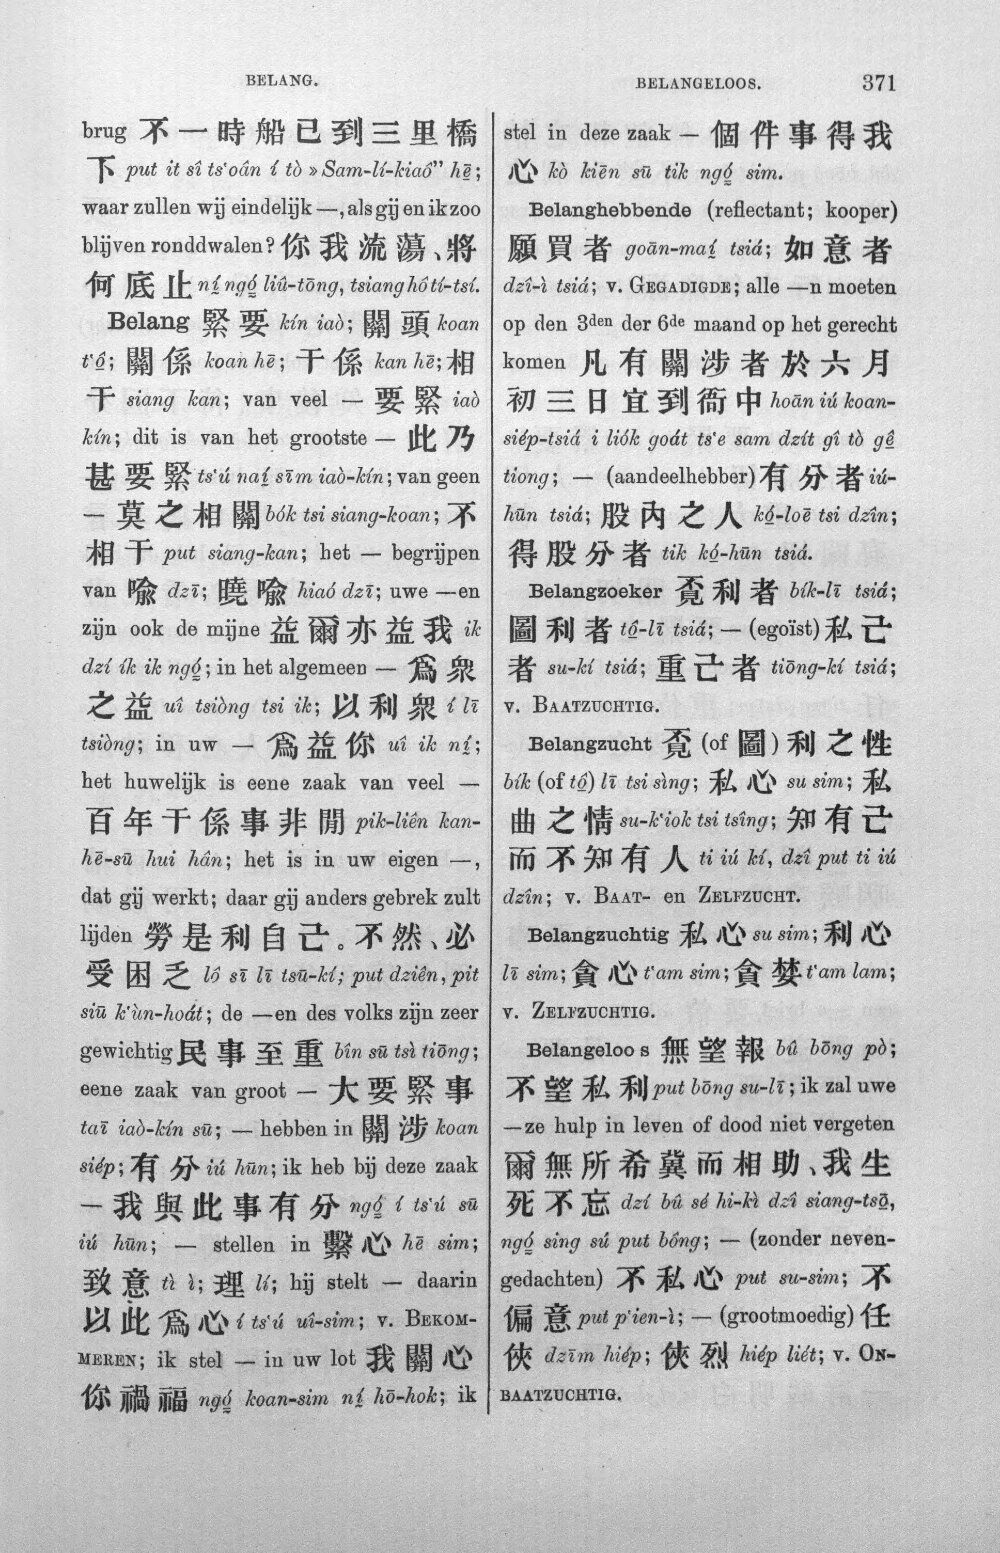 BELANG.
BELANGELOOS.
371
brug 不一時船已到三里橋
下 put it sî tsʻoân í tò »Sam-lí-kiaô” hē;
waar zullen wij eindelijk —, als gij en ik zoo
blijven ronddwalen? 你我流蕩、將
何底止 ní ngó liû-tōng, tsiang hô tí-tsí.
Belang 緊要 kín iaò; 關頭 koan
tʻô; 關係 koan hē; 干係 kan hē; 相
干 siang kan; van veel — 要緊 iaò
kín; dit is van het grootste — 此乃
甚要緊 tsʻú naí sīm iaò-kín; van geen
— 莫之相關 bók tsi siang-koan; 不
相干 put siang-kan; het — begrijpen
van 喩 dzī; 曉喩 hiaó dzī; uwe —en
zijn ook de mijne 益爾亦益我 ik
dzí ík ik ngó; in het algemeen — 爲衆
之益 uî tsiòng tsi ik; 以利衆 í lī
tsiòng; in uw — 爲益你 uî ik ní;
het huwelijk is eene zaak van veel —
百年干係事非閒 pik-liên kan-
hē-sū hui hân; het is in uw eigen —,
dat gij werkt; daar gij anders gebrek zult
lijden 勞是利自己。不然、必
受困乏 lô sī lī tsū-kí; put dziên, pit
siū kʻùn-hoát; de —en des volks zijn zeer
gewichtig 民事至重 bîn sū tsì tiōng;
eene zaak van groot — 大要緊事
taī iaò-kín sū; — hebben in 關涉 koan
siép; 有分 iú hūn; ik heb bij deze zaak
— 我與此事有分 ngó í tsʻú sū
iú hūn; — stellen in 繫心 hē sim;
致意 tì ì; 理 lí; hij stelt — daarin
以此爲心 í tsʻú uî-sim; v. BEKOM-
MEREN; ik stel — in uw lot 我關心
你禍福 ngó koan-sim ní hō-hok; ik
stel in deze zaak — 個件事得我
心 kò kiēn sū tik ngó sim.
Belanghebbende (reflectant; kooper)
願買者 goān-maí tsiá; 如意者
dzî-ì tsiá; v. GEGADIGDE; alle —n moeten
op den 3den der 6de maand op het gerecht
komen 凡有關涉者於六月
初三日宜到衙中 hoān iú koan-
siép-tsiá i liók goát tsʻe sam dzít gî tò gê
tiong; — (aandeelhebber) 有分者 iú-
hūn tsiá; 股內之人 kó-loē tsi dzîn;
得股分者 tik kó-hūn tsiá.
Belangzoeker 覔利者 bík-lī tsiá;
圖利者 tô-lī tsiá; — (egoïst) 私己
者 su-kí tsiá; 重己者 tiōng-kí tsiá;
v. BAATZUCHTIG.
Belangzucht 覔 (of 圖) 利之性
bík (of tô) lī tsi sìng; 私心 su sim; 私
曲之情 su-kʻiok tsi tsîng; 知有己
而不知有人 ti iú kí, dzî put ti iú
dzîn; v. BAAT- en ZELFZUCHT.
Belangzuchtig 私心 su sim; 利心
lī sim; 貪心 tʻam sim; 貪婪 tʻam lam;
v. ZELFZUCHTIG.
Belangeloos 無望報 bû bōng pò;
不望私利 put bōng su-lī; ik zal uwe
—ze hulp in leven of dood niet vergeten
爾無所希冀而相助、我生
死不忘 dzí bû sé hi-kì dzî siang-tsō,
ngó sing sú put bông; — (zonder neven-
gedachten) 不私心 put su-sim; 不
偏意 put pʻien-ì; — (grootmoedig) 任
俠 dzīm hiép; 俠烈 hiép liét; v. ON-
BAATZUCHTIG.